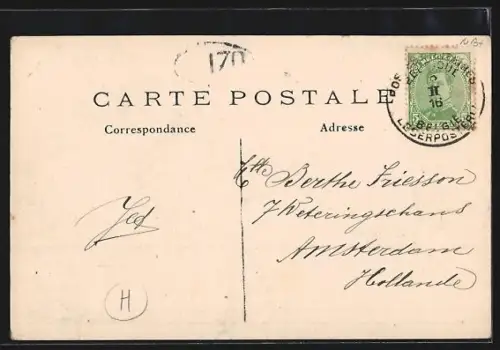 170
CARTE POSTALE
Correspondance
Adresse
BELGIQUE
II
16
BELGIE
LEGERPOSTERIJ
Mlle Berthe Friesson
7 Weteringschans
Amsterdam
Hollande
H